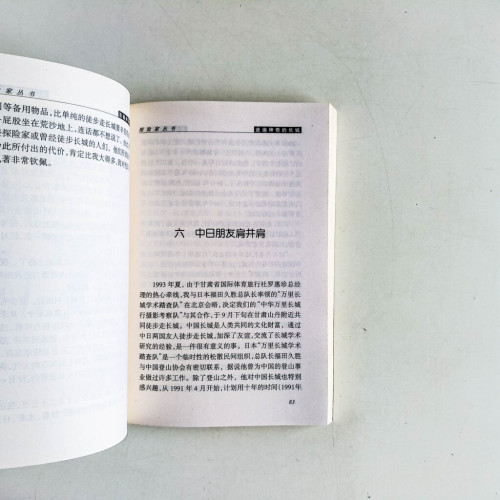 家丛书
等备用物品，比单纯的徒步走长城要
屁股坐在荒沙地上，连话都不想说了。
探险家或曾经徒步长城的人们，他们所
此所付出的代价，肯定比我大得多，我对
著非常钦佩。
探险家丛书
走遍神奇的长城
六 中日朋友肩并肩
1993 年夏，由于甘肃省国际体育旅行社罗惠珍总经
理的热心牵线，我与日本福田久胜总队长率领的“万里长
城学术踏查队”在北京会晤，决定我们的“中华万里长城
行摄影考察队”与其合作，于 9 月下旬在甘肃山丹附近共
同徒步走长城。中国长城是人类共同的文化财富，通过
中日两国友人徒步走长城，加深了友谊，交流了长城学术
研究的经验，是一件很有意义的事。日本“万里长城学术
踏查队”是一个临时性的松散民间组织，总队长福田久胜
与中国登山协会有密切联系，据说他曾为中国的登山事
业做过许多工作。除了登山之外，他对中国长城也特别
感兴趣，从 1991 年 4 月开始，计划用十年的时间（1991 年